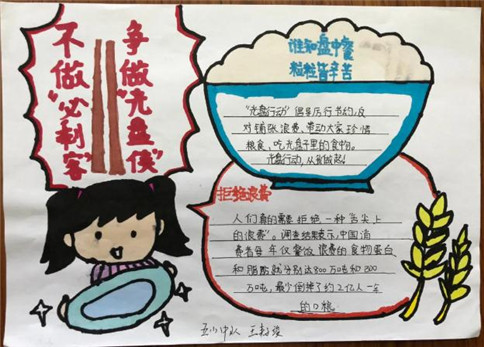 争做“光盘侠”
不做“必剩客”
谁知盘中餐
粒粒皆辛苦
“光盘行动”倡导厉行节约，反
对铺张浪费，带动大家珍惜
粮食、吃光盘子里的食物。
光盘行动，从我做起！
拒绝浪费
人们真的需要拒绝一种“舌尖上
的浪费”。调查结果表示，中国消
费者每年仅餐饮浪费的食物蛋白
和脂肪就分别达800万吨和300
万吨，最少倒掉了约2亿人一年
的口粮。
中队